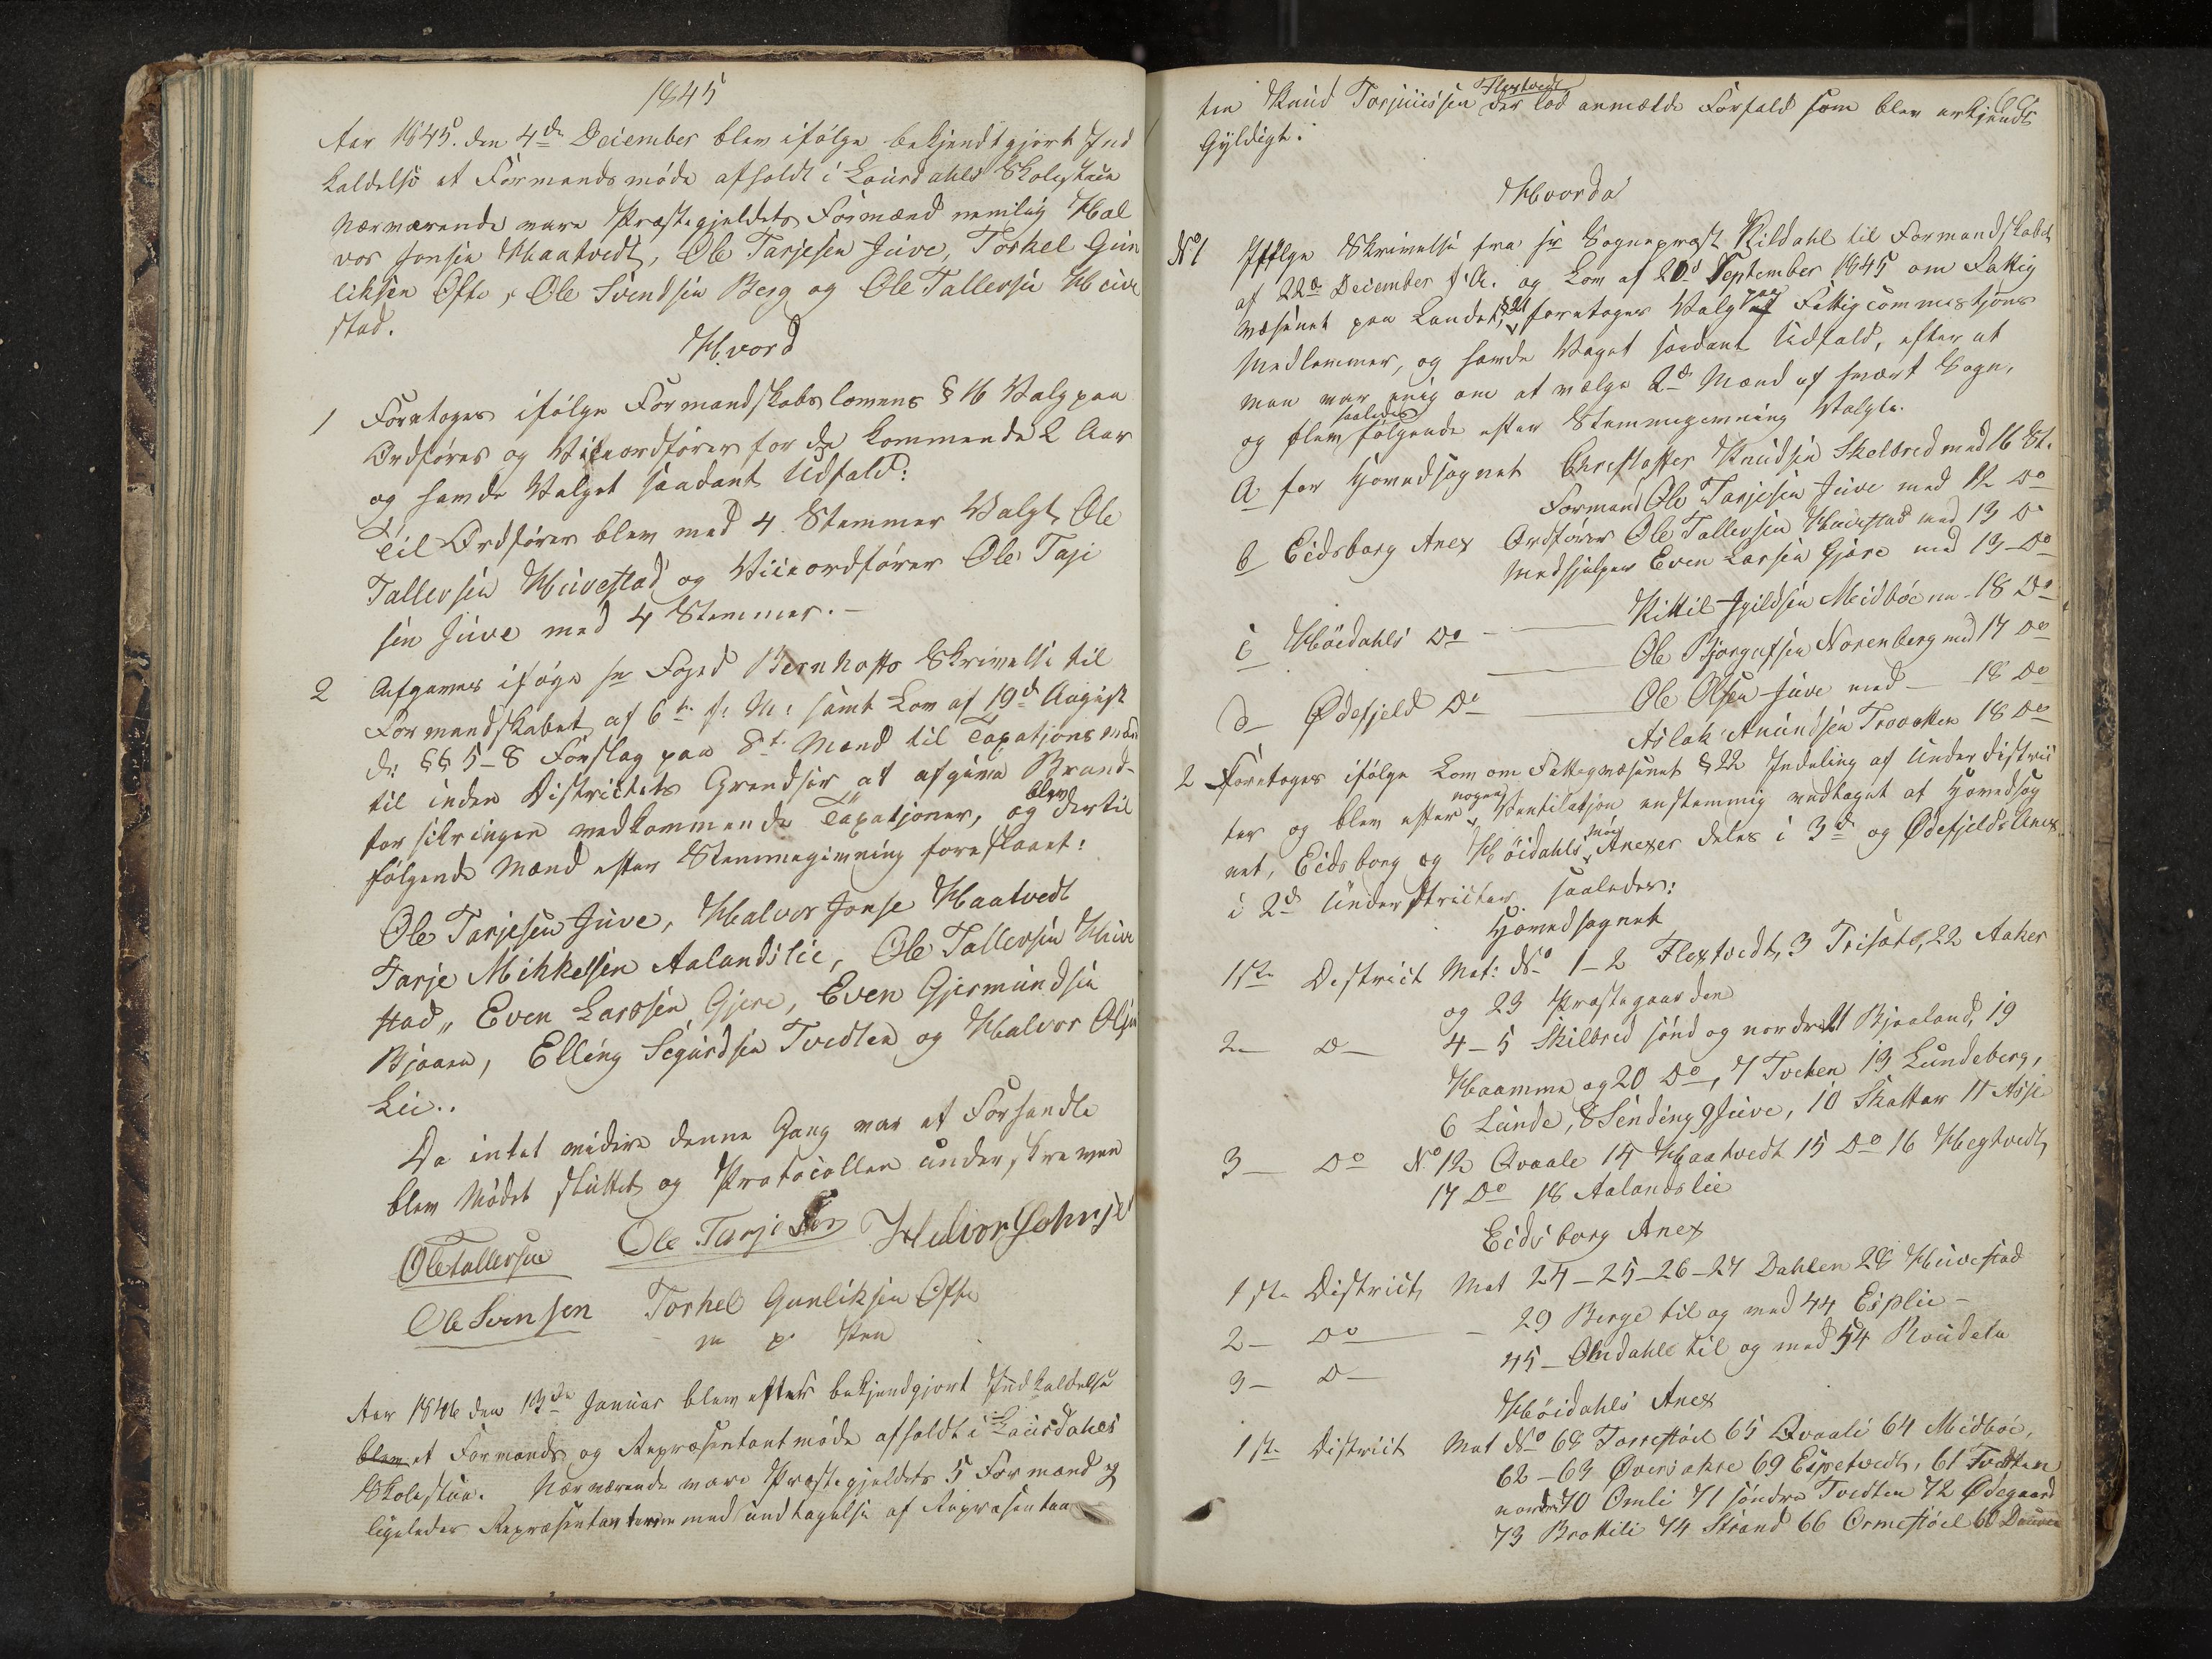 1845
Aar 1845. den 4de Deiember blev ifølge bekjendtgjort Ind
kaldelse et Formands møde afholdt i Laurdahls Skolestue
Nærværende vare Præstegjeldets Formænd nemlig Hal
vor Jonsen Haatvedt, Ole Tarjesen Juve, Torkel Gun
liksen Ofte, Ole Svendsen Berg og Ole Tallevsen Huve
stad.
Hvord
1 Foretoges ifølge Formandskabslovens § 16 Valg paa
Ordføres og Viceordfører for de kommende 2 Aar
og havde Valget saadant Udfald:
Til Ordfører blev med 4 Stemmer Valgt Ole
Tallevsen Huvestad og Viceordfører Ole Taje
sen Juve med 4 Stemmer. -
2 Afgaves iføge hr Foged Bernhofts Skrivelse til
Formandskabet af 6te f: M: samt Lov af 19de August
d: §§ 5-8 Forslag paa 8te Mænd til Taxations mænd
til inden Districtets Grændser at afgive Brand-
forsikringen vedkommende Taxatjoner, og blev dertil
følgende Mænd efter Stemmegivning foreslaaet:
Ole Tarjesen Juve, Halvor Jonse Haatvedt
Tarje Mikkelsen Aalandslie, Ole Tallevsen Huve
stad, Even Larssen Gjere, Even Gjermundsen
Bjaaen, Elling Segurdsen Tvedten og Halvor Olsen
Lie..
Da intet videre denne Gang var at Forhandle
blev Mødet sluttet og Protocollen underskreven
Ole Tallevsen Ole Tarjesen Halvor Johnsen
Ole Svensen Torkel Gunliksen Ofte
m p Pen
Aar 1846 den 13de Januar blev efter bekjendgjort Indkaldelse
blev et Formands og Repræsentantmøde afholdt i Laurdahls
Skolestue. Nærværende vare Præstegjeldets 5 Formænd og
ligeledes Repræsentanterne med undtagelse af Repræsentan
ten Knud Torjuussen Flextvedt der lod anmælde Forfald som blev erkjendt
Gyldigt.
Hvorda
No 1 Ifølge Skrivelse fra hr Sognepræst Kildahl til Formandskabet
af 22de December f. A. og Lov af 20de September 1845 om Fattig
væsenet paa Landet, § 21 foretoges Valg paa Fattigcommistjons
Medlemmer, og havde Vaget saadant Udfald, efter at
man var enig om at vælge 2de Mænd af hvært Sogn,
og blev saaledes følgende efter Stemmegivning Valgte.
a for Hovedsognet Chrestoffer Knudsen Skelbred med 16 St.
Formand Ole Tarjesen Juve med 12 Do
b Eidsborg Anex Ordfører Ole Tallevsen Huvestad med 13 Do
Medhjelper Even Larsen Gjøre med 13 Do
c Høidahls Do Kittil Igildsen Meidbøe m 18 Do
Ole Bjørgufsen Norenberg med 17 Do
d Ødefjeld Do Ole Olsen Juve med 18 Do
Aslak Anundsen Trovatten 18 Do
2 Foretoges ifølge Lov om Fattegvæsenet § 22 Indeling af Under distric
ter og blev efter nogen Ventilatjon enstemmig vedtaget at Hovedsog
net, Eidsborg og Høidahls Anexer deles i 3de og Ødefjelds Anex
i 2de Understricter saaledes:
Hovedsognet
1ste Destrict Mat: No 1-2 Flextvedt, 3 Trisæt, 22 Aaker
og 23 Præstegaarden
2 D 4-5 Skilbred sønd og nordre 21 Bjaaland, 19
Haamme og 20 Do, 7 Tveten 13 Lundeberg,
6 Lunde, 8 Sending 9 Juve, 10 Skattar 11 Asje
3 Do No 12 Qvaale 14 Haatvedt 15 Do 16 Hegtvedt,
17 Do 18 Aalandslie
Eidsborg Anex
1ste District, Mat 24-25-26-27 Dahlen 28 Huvestad
2 Do 29 Berge til og med 44 Eiplie
3 D 45 - Omdahl til og med 54 Roudalu
Høidahls Anex
1ste District Mat No 68 Torrestøil 65 Qvaale 64 Midbøe,
62-63 Øversakre 69 Espetvedt, 61 Tvedten
nordre 70 Omli 71 søndre Tvedten 72 Ødegaard
73 Brottili 74 Strand 66 Ormestøil 60